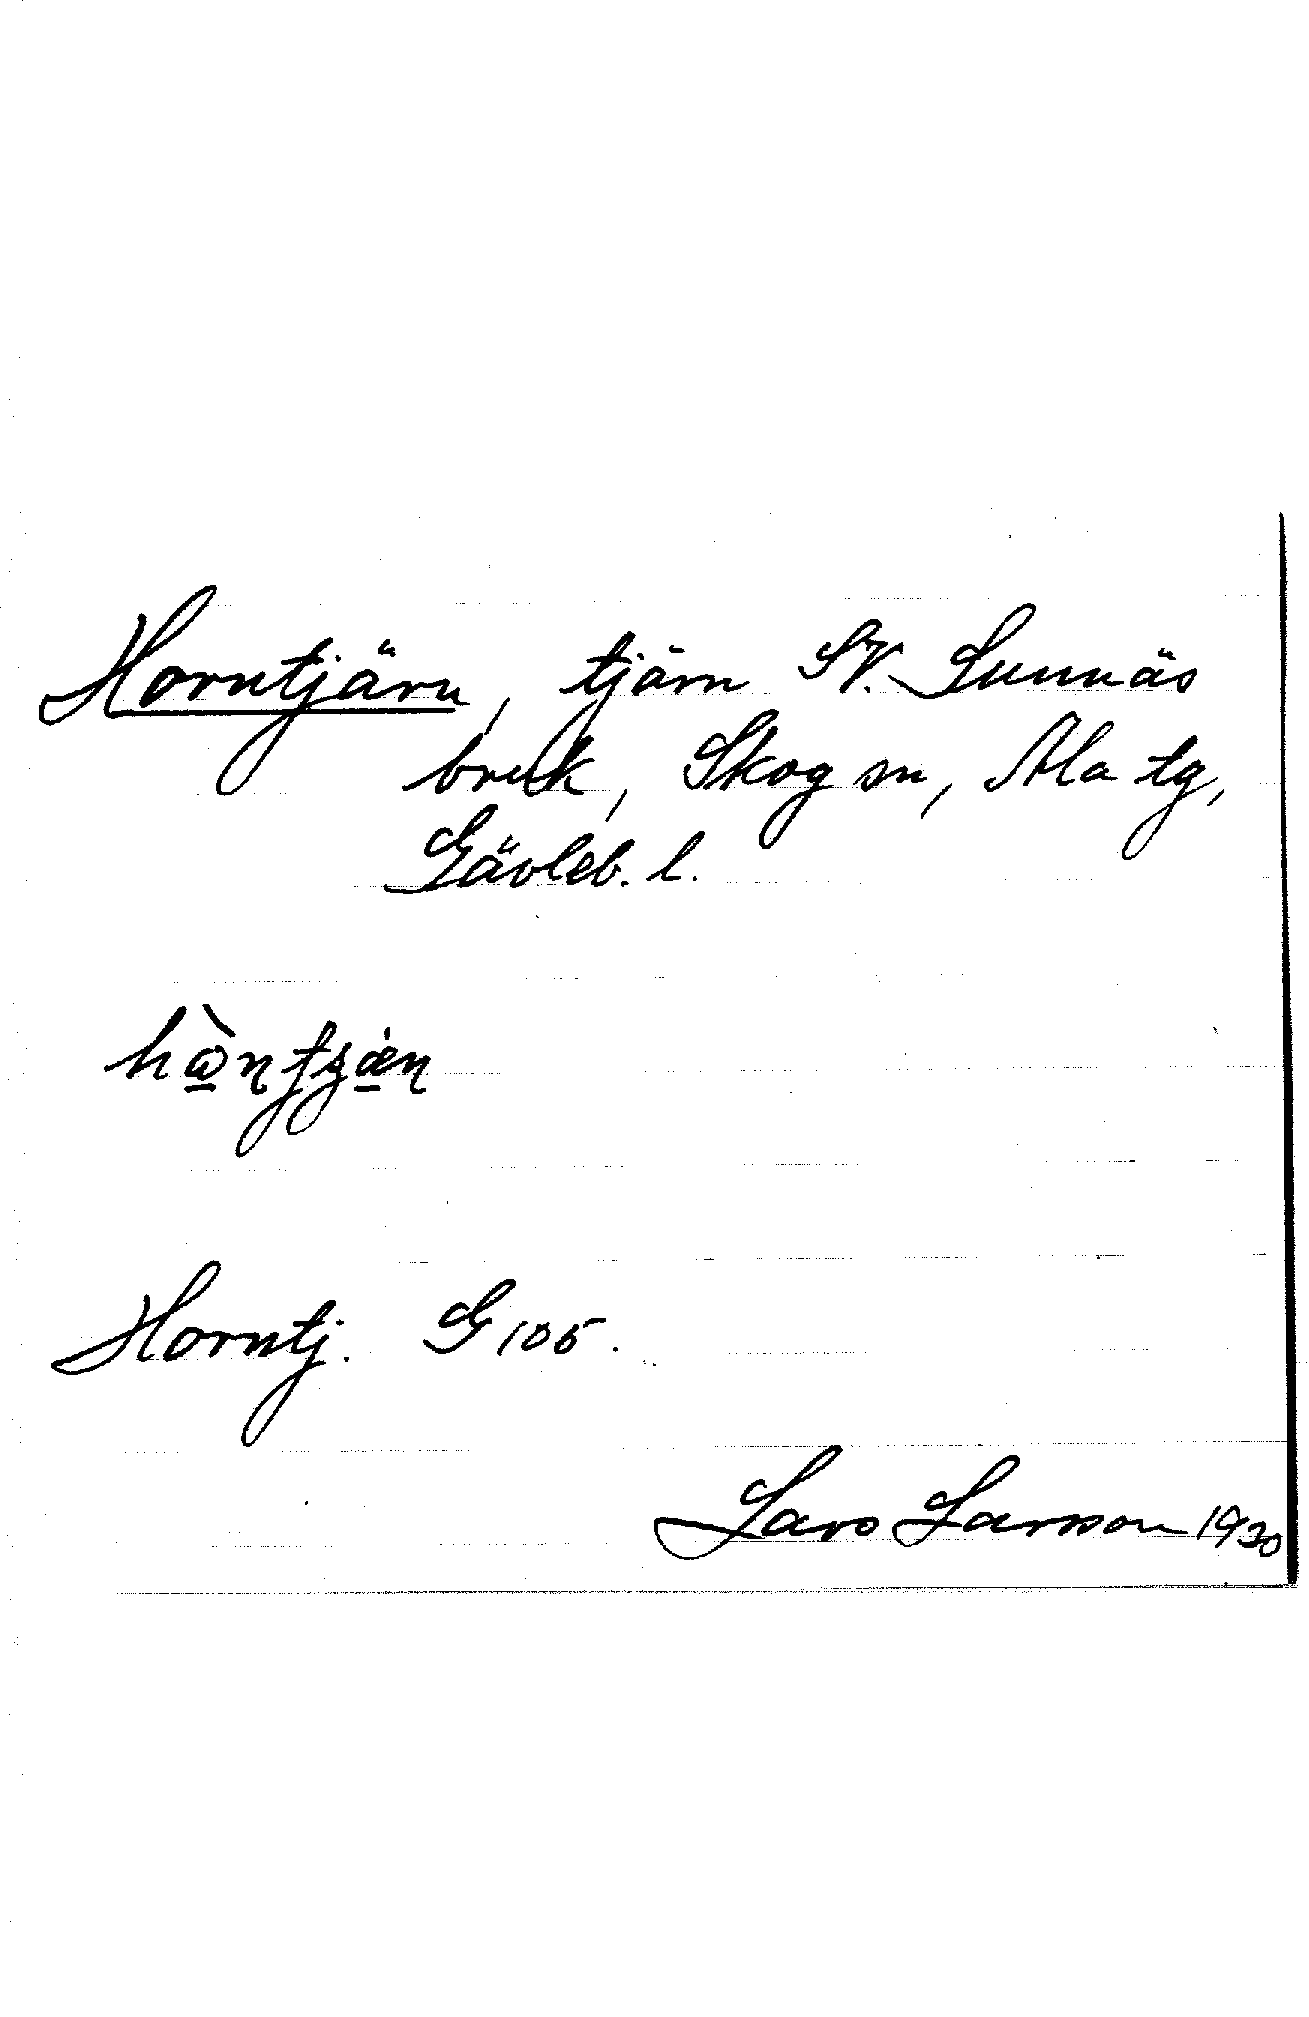 Horntjärn, tjärn SV. Sunnäs
bruk, Skog sn, Ala tg,
Gävleb. l.
Horntj. G 105.
Lars Larsson 1930